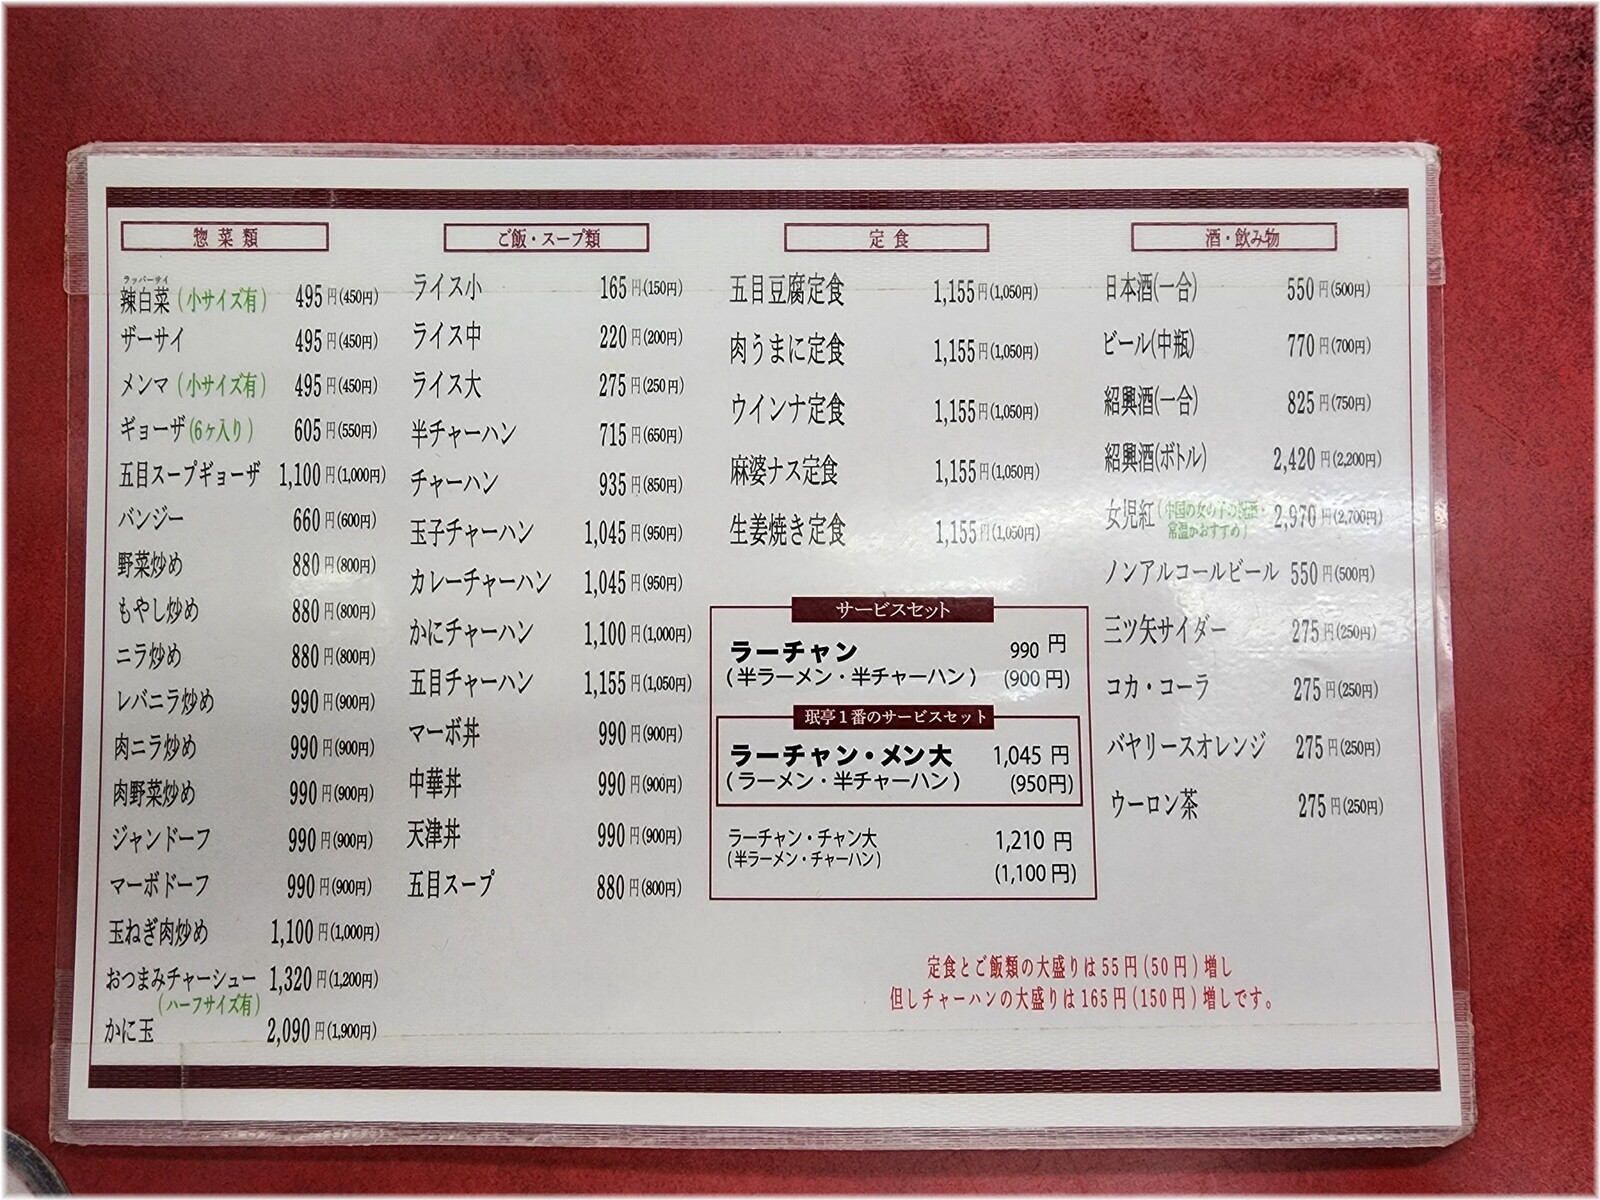 惣菜類
ラッパーサイ
辣白菜(小サイズ有) 495円(450円)
ザーサイ 495円(450円)
メンマ(小サイズ有) 495円(450円)
ギョーザ(6ヶ入り) 605円(550円)
五目スープギョーザ 1,100円(1,000円)
バンジー 660円(600円)
野菜炒め 880円(800円)
もやし炒め 880円(800円)
ニラ炒め 880円(800円)
レバニラ炒め 990円(900円)
肉ニラ炒め 990円(900円)
肉野菜炒め 990円(900円)
ジャンドーフ 990円(900円)
マーボドーフ 990円(900円)
玉ねぎ肉炒め 1,100円(1,000円)
おつまみチャーシュー 1,320円(1,200円)
(ハーフサイズ有)
かに玉 2,090円(1,900円)
ご飯・スープ類
ライス小 165円(150円)
ライス中 220円(200円)
ライス大 275円(250円)
半チャーハン 715円(650円)
チャーハン 935円(850円)
玉子チャーハン 1,045円(950円)
カレーチャーハン 1,045円(950円)
かにチャーハン 1,100円(1,000円)
五目チャーハン 1,155円(1,050円)
マーボ丼 990円(900円)
中華丼 990円(900円)
天津丼 990円(900円)
五目スープ 880円(800円)
定食
五目豆腐定食 1,155円(1,050円)
肉うまに定食 1,155円(1,050円)
ウインナ定食 1,155円(1,050円)
麻婆ナス定食 1,155円(1,050円)
生姜焼き定食 1,155円(1,050円)
サービスセット
ラーチャン 990円
(半ラーメン・半チャーハン) (900円)
珉亭1番のサービスセット
ラーチャン・メン大 1,045円
(ラーメン・半チャーハン) (950円)
ラーチャン・チャン大 1,210円
(半ラーメン・チャーハン)
(1,100円)
酒・飲み物
日本酒(一合) 550円(500円)
ビール(中瓶) 770円(700円)
紹興酒(一合) 825円(750円)
紹興酒(ボトル) 2,420円(2,200円)
女児紅(中国の女の子の祝酒・ 2,970円(2,700円)
常温がおすすめ)
ノンアルコールビール 550円(500円)
三ツ矢サイダー 275円(250円)
コカ・コーラ 275円(250円)
バヤリースオレンジ 275円(250円)
ウーロン茶 275円(250円)
定食とご飯類の大盛りは55円(50円)増し
但しチャーハンの大盛りは165円(150円)増しです。